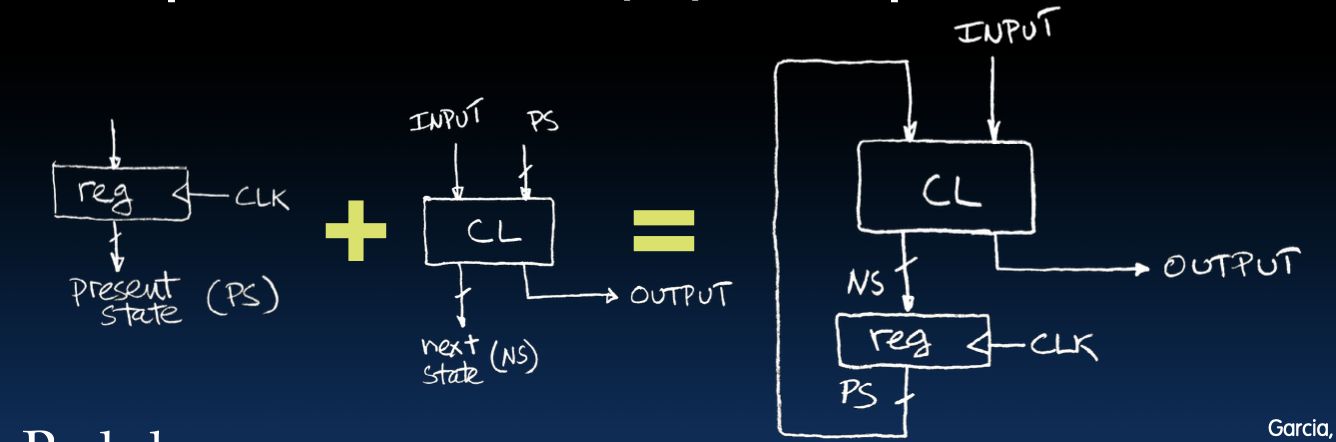 reg
CLK
present (PS)
state
INPUT PS
CL
OUTPUT
next (NS)
state
INPUT
CL
NS
OUTPUT
reg
CLK
PS
Garcia,